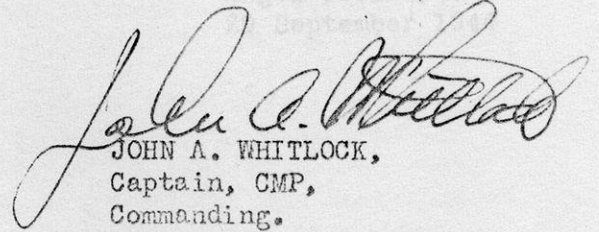 John A. Whitlock
JOHN A. WHITLOCK,
Captain, CMP,
Commanding.